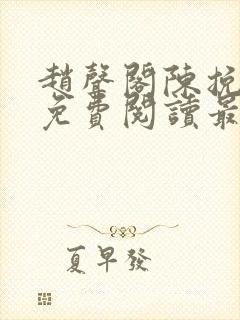 趙聲閣陳挽
免費閱讀最
夏早發